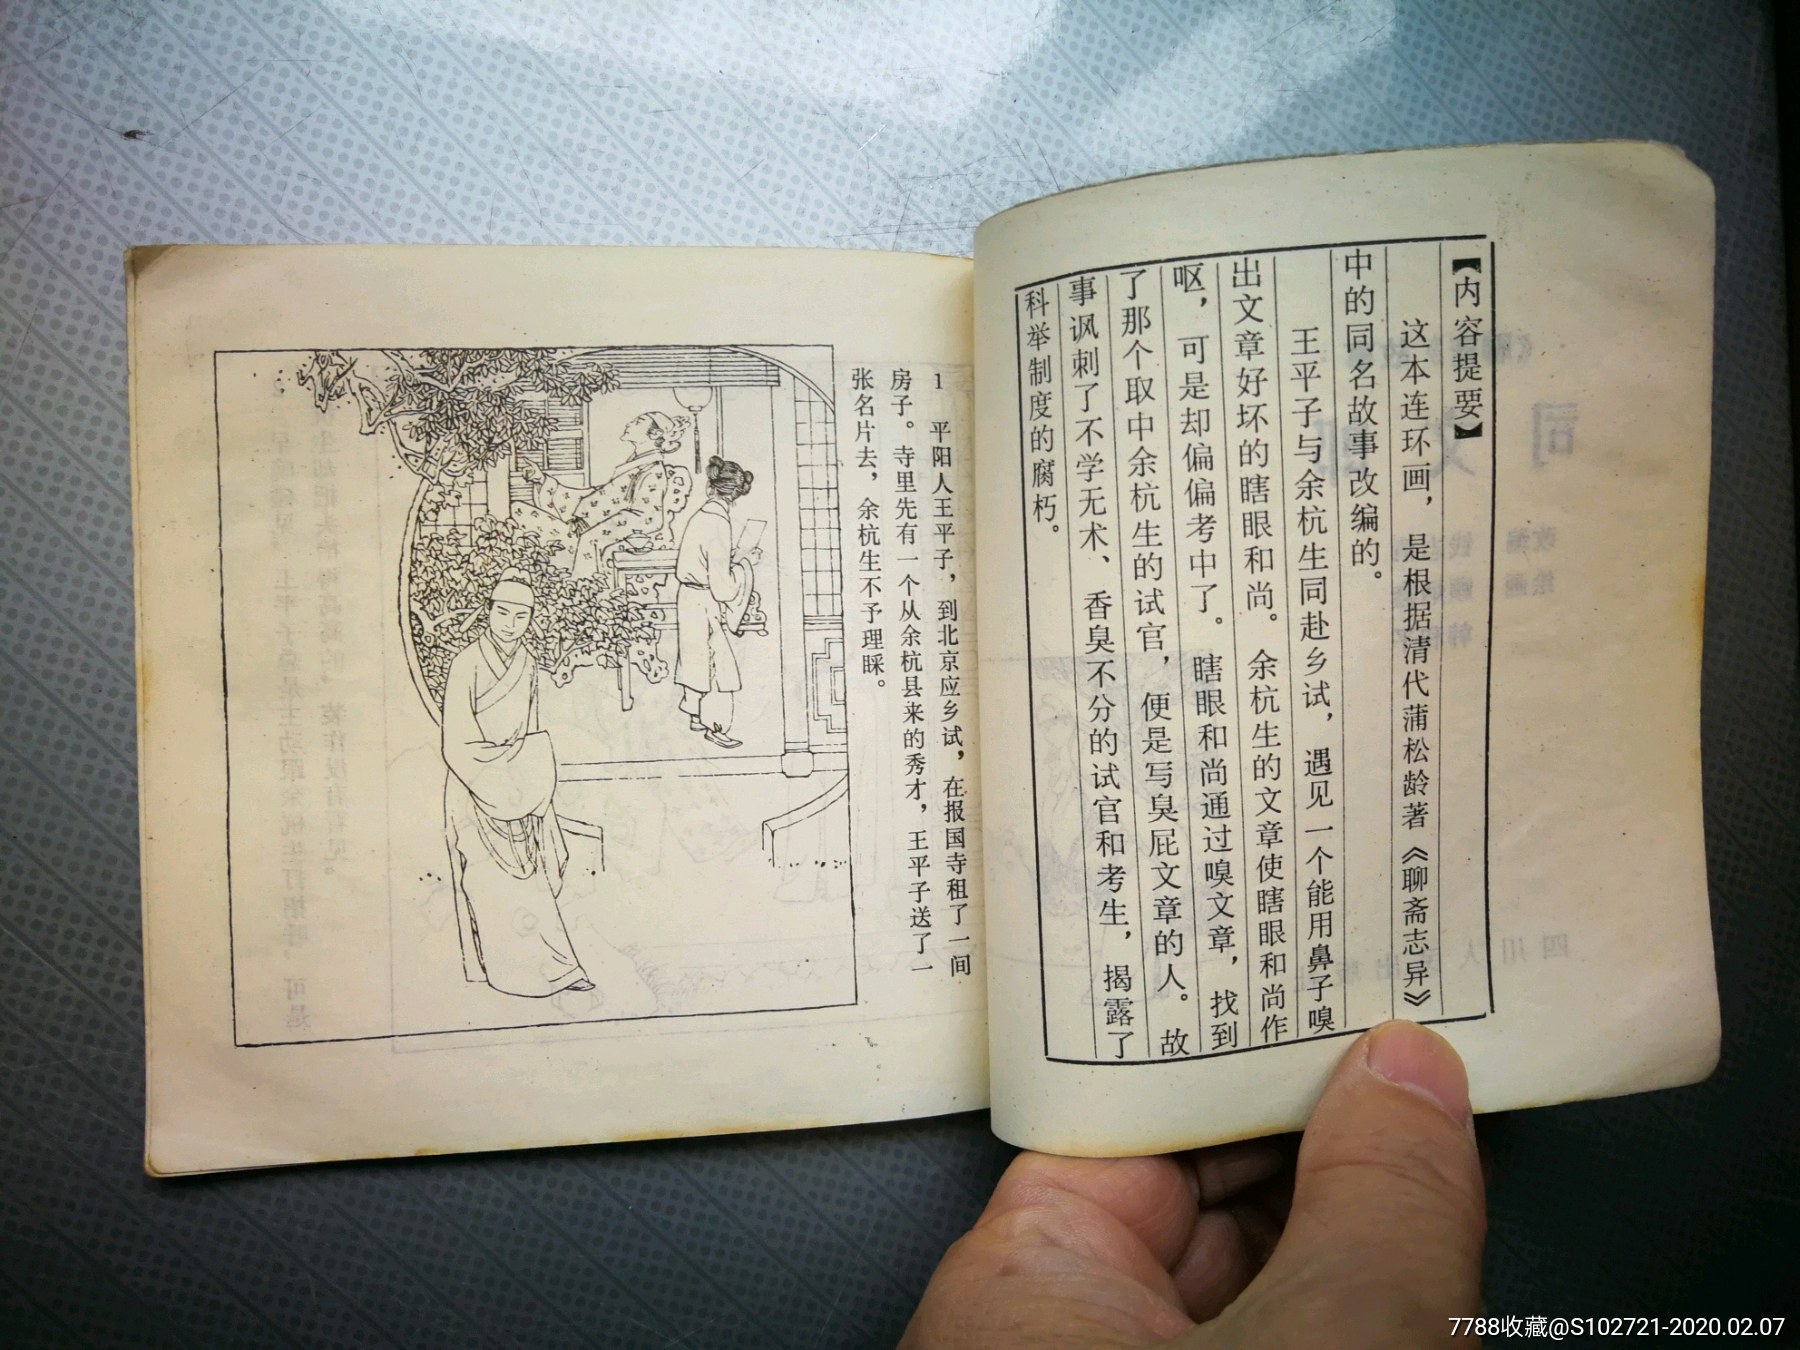 【内容提要】
这本连环画，是根据清代蒲松龄著《聊斋志异》
中的同名故事改编的。
王平子与余杭生同赴乡试，遇见一个能用鼻子嗅
出文章好坏的瞎眼和尚。余杭生的文章使瞎眼和尚作
呕，可是却偏偏考中了。瞎眼和尚通过嗅文章，找到
了那个取中余杭生的试官，便是写臭屁文章的人。故
事讽刺了不学无术、香臭不分的试官和考生，揭露了
科举制度的腐朽。
1 平阳人王平子，到北京应乡试，在报国寺租了一间
房子。寺里先有一个从余杭县来的秀才，王平子送了一
张名片去，余杭生不予理睬。
7788收藏@S102721-2020.02.07